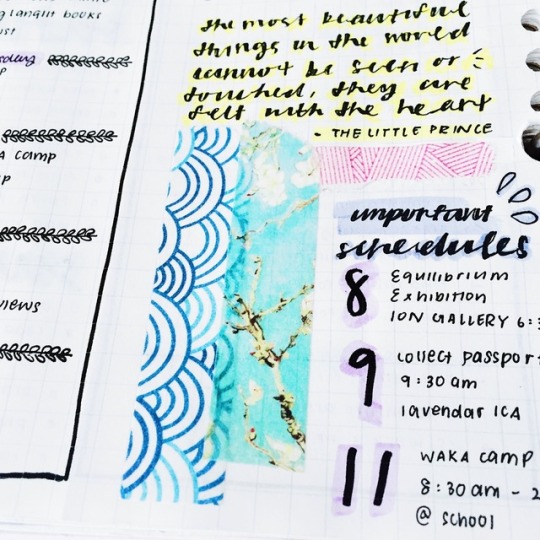 langlit books
camp
views
the most beautiful
things in the world
cannot be seen or
touched, they are
felt with the heart
- THE LITTLE PRINCE
important
schedules
8 Equilibrium
Exhibition
ION GALLERY 6:3
9 collect passport
9:30 am
lavendar ICA
11 WAKA camp
8:30 am - 2
@ school